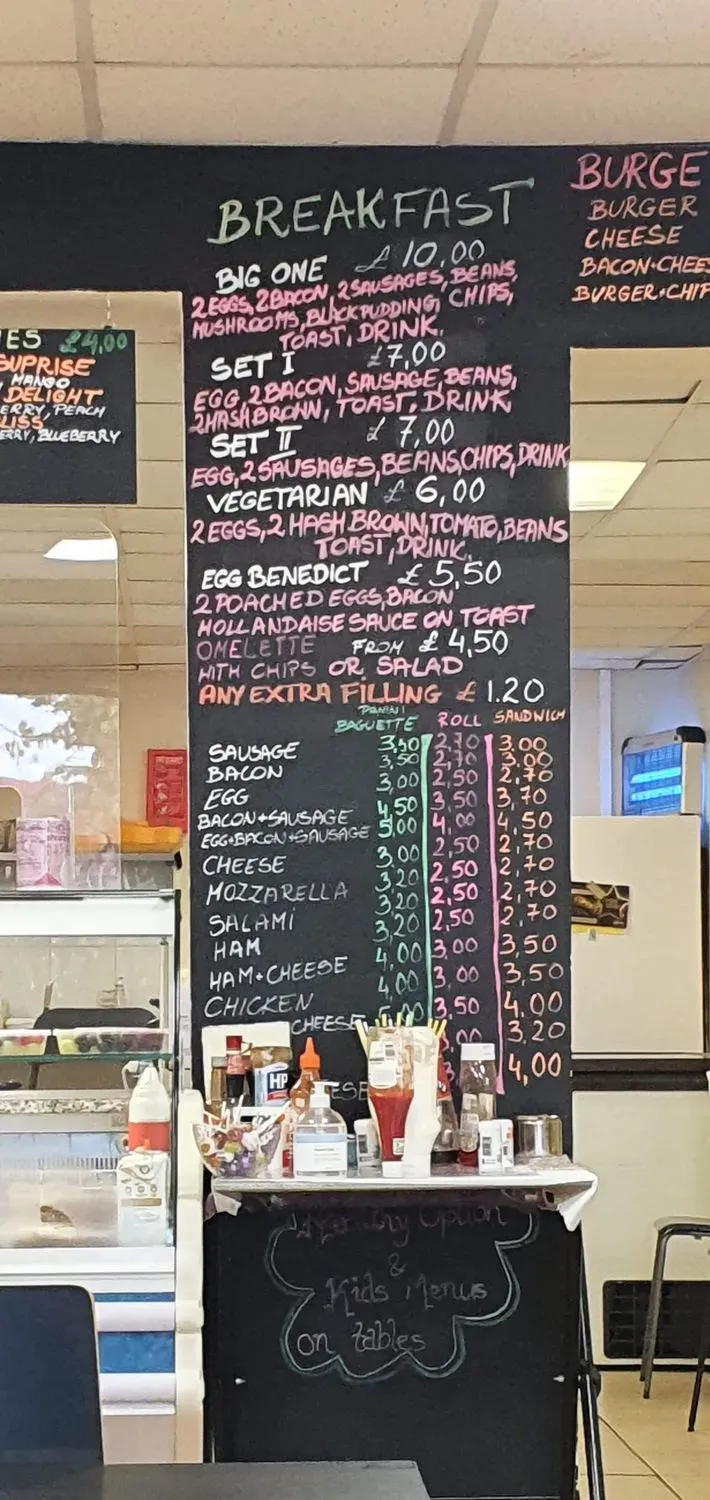 BREAKFAST
BIG ONE £ 10,00
2 EGGS, 2 BACON, 2 SAUSAGES, BEANS,
MUSHROOMS, BLACK PUDDING, CHIPS,
TOAST, DRINK.
SET I £7,00
EGG, 2 BACON, SAUSAGE, BEANS,
2 HASH BROWN, TOAST, DRINK
SET II £ 7,00
EGG, 2 SAUSAGES, BEANS, CHIPS, DRINK
VEGETARIAN £ 6,00
2 EGGS, 2 HASH BROWN, TOMATO, BEANS
TOAST, DRINK.
EGG BENEDICT £ 5,50
2 POACHED EGGS, BACON
HOLLANDAISE SAUCE ON TOAST
OMELETTE FROM £ 4,50
WITH CHIPS OR SALAD
ANY EXTRA FILLING £ 1.20
PANINI
BAGUETTE ROLL SANDWICH
SAUSAGE 3,50 2,70 3,00
BACON 3,50 2,70 3,00
EGG 3,00 2,50 2,70
BACON+SAUSAGE 4,50 3,50 3,70
EGG+BACON+SAUSAGE 5,00 4,00 4,50
CHEESE 3,00 2,50 2,70
MOZZARELLA 3,20 2,50 2,70
SALAMI 3,20 2,50 2,70
HAM 3,20 2,50 2,70
HAM+CHEESE 4,00 3,00 3,50
CHICKEN 4,00 3,00 3,50
CHEESE 3,50 4,00
3,20
4,00
BURGE
BURGER
CHEESE
BACON+CHEES
BURGER+CHIP
IES £4,00
SUPRISE
, MANGO
DELIGHT
ERRY, PEACH
LISS
ERRY, BLUEBERRY
HP
Option
&
Kids Menus
on tables